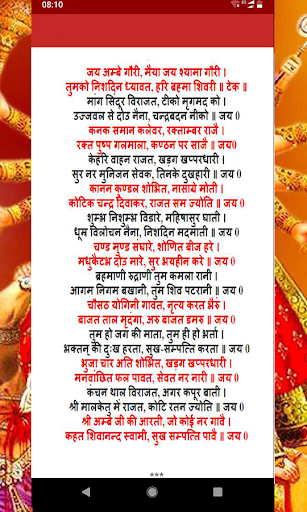 08:10
जय अम्बे गौरी, मैया जय श्यामा गौरी ।
तुमको निशदिन ध्यावत, हरि ब्रहमा शिवरी ॥ टेक ॥
मांग सिंदूर विराजत, टीको मृगमद को ।
उज्जवल से दोउ नैना, चन्द्रबदन नीको ॥ जय 0
कनक समान कलेवर, रक्ताम्बर राजै ।
रक्त पुष्प गलमाला, कण्ठन पर साजै ॥ जय 0
केहरि वाहन राजत, खड़ग खप्परधारी ।
सुर नर मुनिजन सेवक, तिनके दुखहारी ॥ जय 0
कानन कुण्डल शोभित, नासाग्रे मोती ।
कोटिक चन्द्र दिवाकर, राजत सम ज्योति ॥ जय 0
शुम्भ निशुम्भ विडारे, महिषासुर घाती ।
धूम्र विलोचन नैना, निशदिन मदमाती ॥ जय 0
चण्ड मुण्ड संघारे, शोणित बीज हरे ।
मधुकैटभ दोउ मारे, सुर भयहीन करे ॥ जय 0
ब्रहमाणी रुद्राणी तुम कमला रानी ।
आगम निगम बखानी, तुम शिव पटरानी ॥ जय 0
चौसठ योगिनी गावत, नृत्य करत भैरुं ।
बाजत ताल मृदंगा, अरु बाजत डमरु ॥ जय 0
तुम हो जग की माता, तुम ही हो भर्ता ।
भक्तन् की दुःख हरता, सुख-सम्पत्ति करता ॥ जय 0
भुजा चार अति शोभित, खड़ग खप्परधारी ।
मनवांछित फल पावत, सेवत नर नारी ॥ जय 0
कंचन थाल विराजत, अगर कपूर बाती ।
श्री मालकेतु में राजत, कोटि रतन ज्योति ॥ जय 0
श्री अम्बे जी की आरती, जो कोई नर गावै ।
कहत शिवानन्द स्वामी, सुख सम्पत्ति पावै ॥ जय 0
***